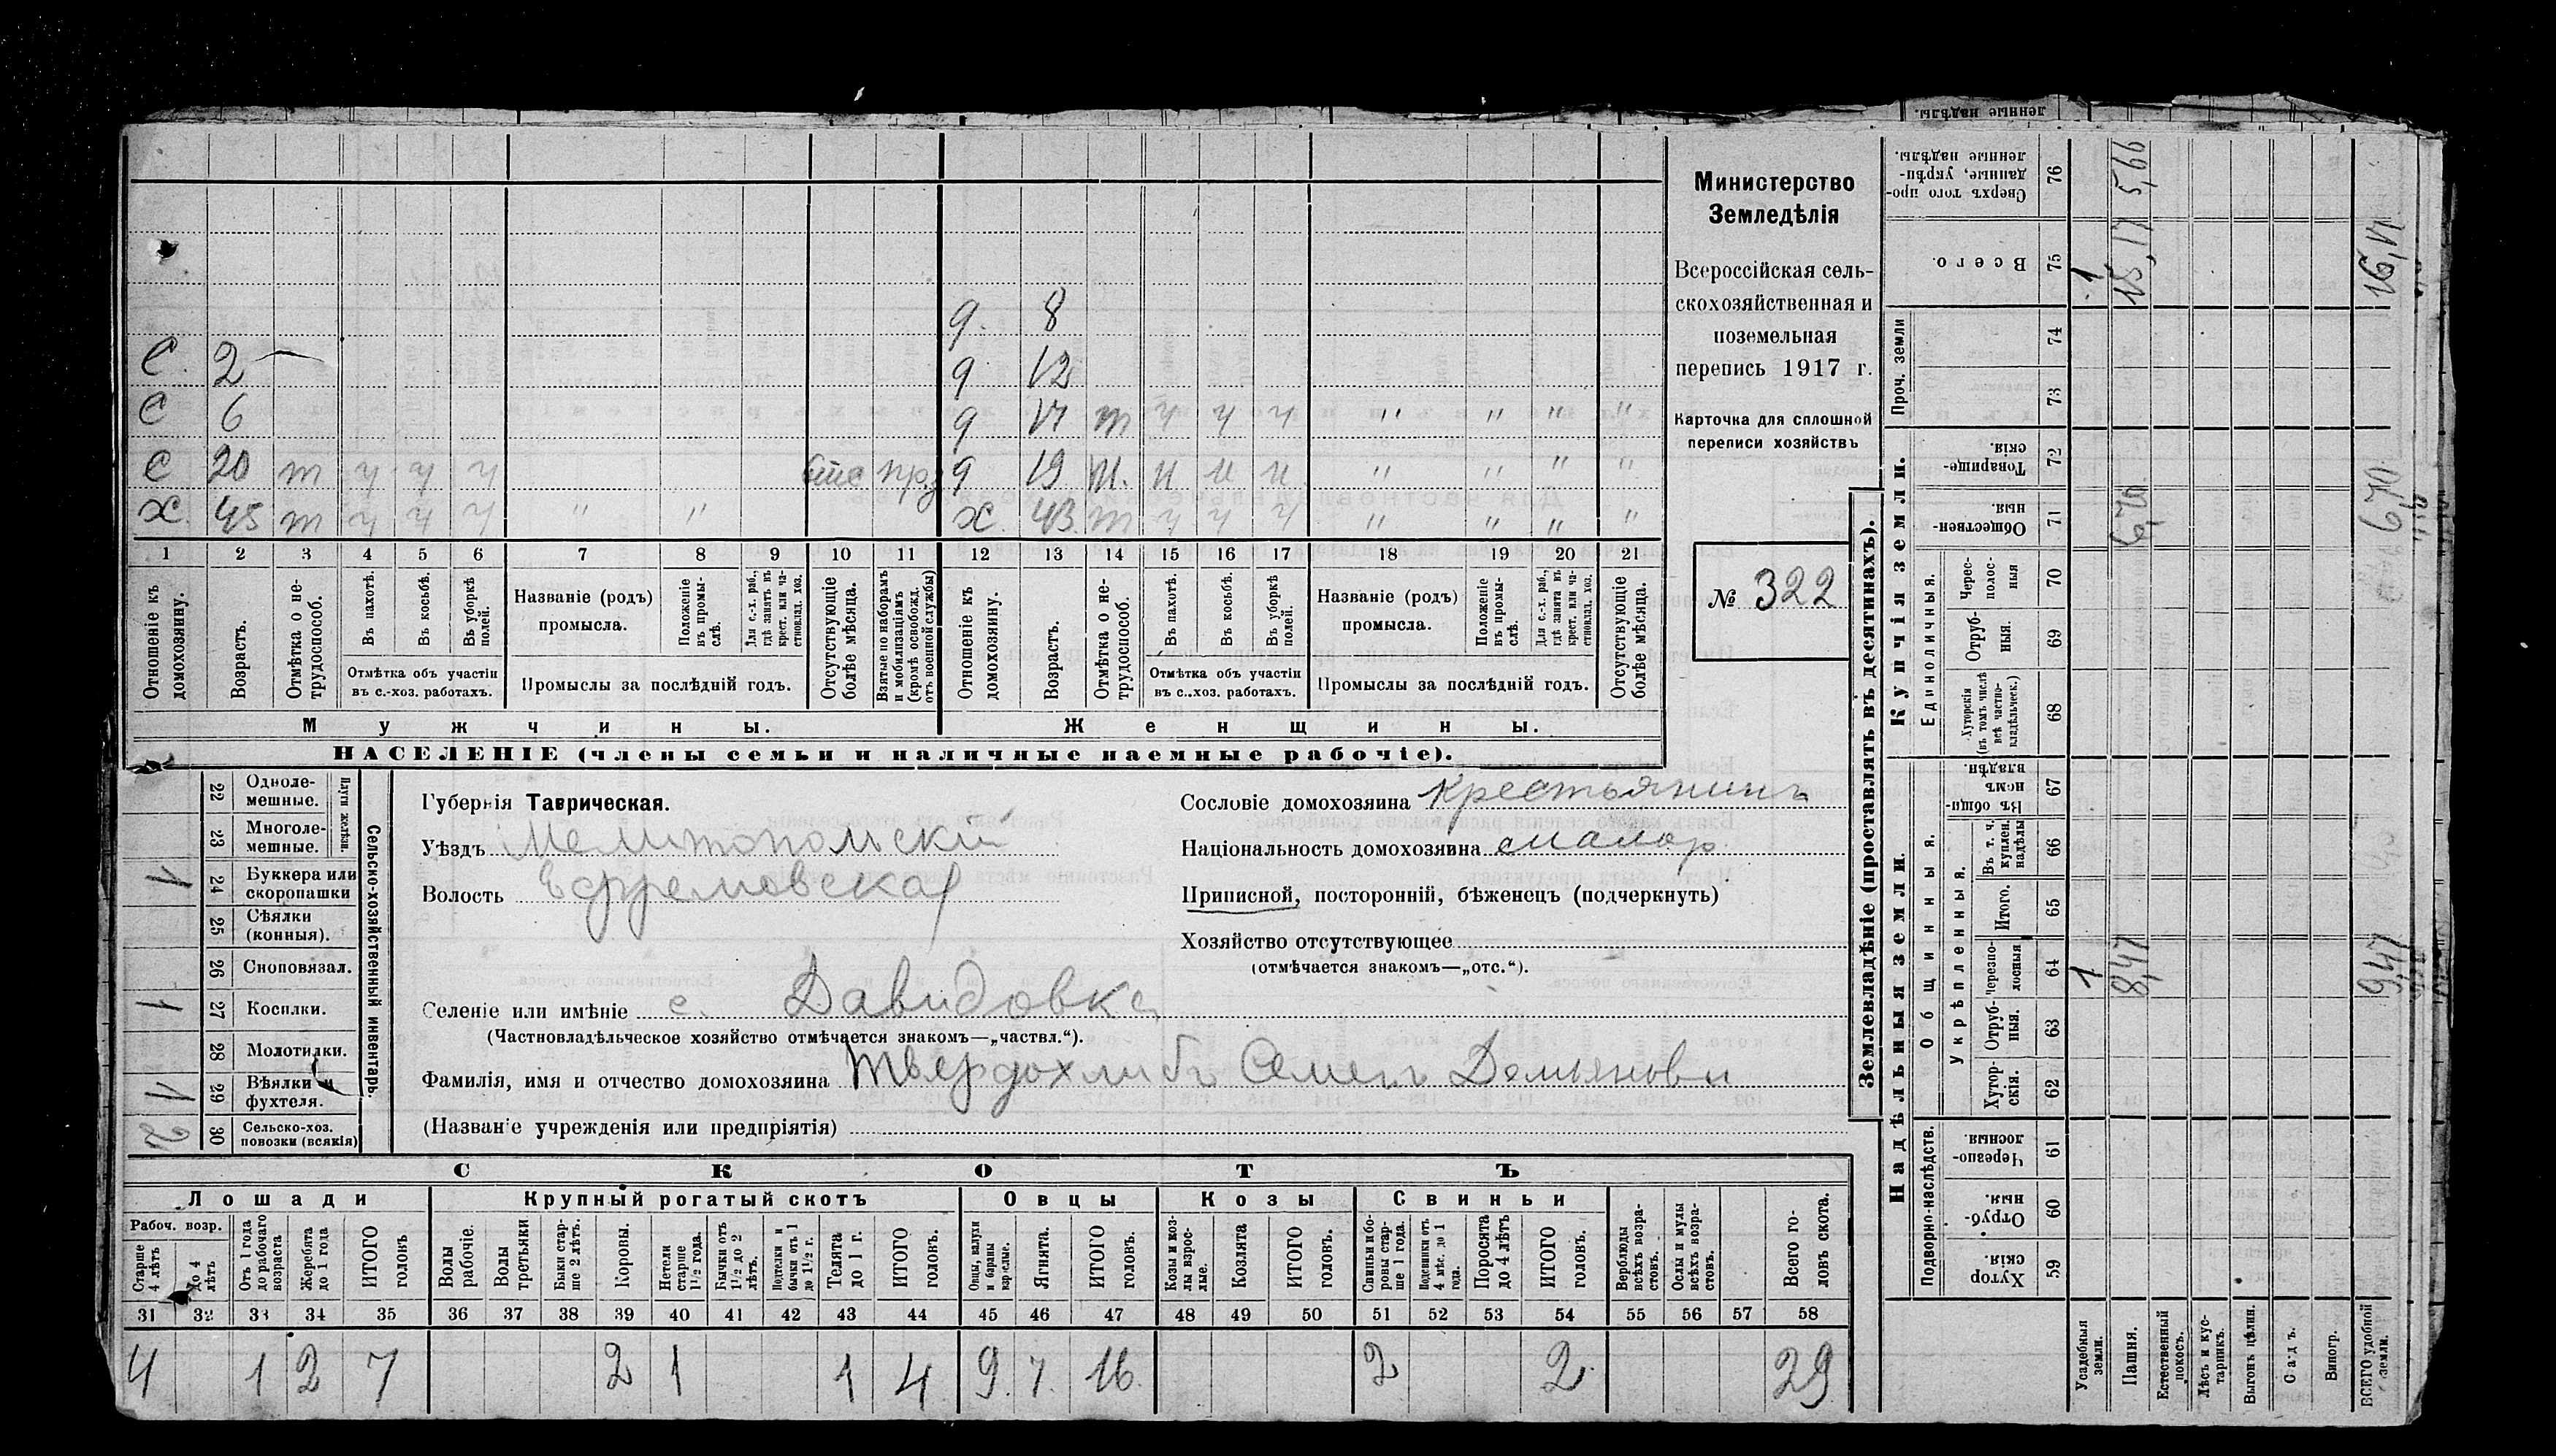 С. 2 — д. 8
С 6 д 12
С 20 т ч ч ч пр. д 17 т ч ч ч " " " "
Х. 45 т ч ч ч " " д 19
Х. 43 т ч ч ч " " " "
1 2 3 4 5 6 7 8 9 10 11 12 13 14 15 16 17 18 19 20 21
Отношеніе къ домохозяину.
Возрастъ.
Отмѣтка о не-трудоспособ.
Въ пахотѣ.
Въ косьбѣ.
Въ уборкѣ полей.
Отмѣтка объ участіи въ с.-хоз. работахъ.
Названіе (родъ) промысла.
Положеніе въ промыслѣ.
Для с.-х. раб., гдѣ занятъ въ крест. или частновлад. хоз.
Промыслы за послѣдній годъ.
Отсутствующіе болѣе мѣсяца.
Взятые по наборамъ и мобилизаціямъ (кромѣ освобожд. отъ военной службы)
Отношеніе къ домохозяину.
Возрастъ.
Отмѣтка о не-трудоспособ.
Въ пахотѣ.
Въ косьбѣ.
Въ уборкѣ полей.
Отмѣтка объ участіи въ с..хоз. работахъ.
Названіе (родъ) промысла.
Положеніе въ промыслѣ.
Для с.-х. раб., гдѣ занята въ крест. или частновлад. хоз.
Промыслы за послѣдній годъ.
Отсутствующіе болѣе мѣсяца.
Мужчины. Женщины.
НАСЕЛЕНІЕ (члены семьи и наличные наемные рабочіе).
Министерство
Земледѣлія
Всероссійская сель-
скохозяйственная и
поземельная
перепись 1917 г.
Карточка для сплошной
переписи хозяйствъ
№ 322
Сельско-хозяйственный инвентарь.
Плуги желѣзн.
22 Одноле-мешные.
23 Многоле-мешные.
1 24 Буккера или скоропашки
25 Сѣялки (конныя).
26 Сноповязал.
1 27 Косилки.
28 Молотилки.
1 29 Вѣялки и фухтеля.
2 30 Сельско-хоз. повозки (всякія)
Губернія Таврическая.
Уѣздъ Мелитопольскій
Волость Ефремовская
Селеніе или имѣніе с. Давидовка
(Частновладѣльческое хозяйство отмѣчается знакомъ—„частвл.“).
Фамилія, имя и отчество домохозяина Твердохлибъ Семенъ Демьянови
(Названіе учрежденія или предпріятія)
Сословіе домохозяина Крестьянинъ
Національность домохозяина малор.
Приписной, посторонній, бѣженецъ (подчеркнуть)
Хозяйство отсутствующее
(отмѣчается знакомъ—„отс.“).
СКОТЪ
Лошади Крупный рогатый скотъ Овцы Козы Свиньи
Рабоч. возр.
Старше 4 лѣтъ
До 4 лѣтъ
Отъ 1 года до рабочаго возраста
Жеребята до 1 года
ИТОГО головъ
Волы рабочіе.
Волы третьяки
Быки стар-ше 2 лѣтъ.
Коровы.
Нетели старше 1½ года.
Бычки отъ 1½ до 2 лѣтъ.
Подтелки и бычки отъ 1 до 1½ г.
Телята до 1 г.
ИТОГО головъ.
Овцы, валухи и бараны взрослые.
Ягнята.
ИТОГО головъ.
Козы и коз-лы взрос-лые.
Козлята
ИТОГО головъ.
Свиньи и бо-ровы стар-ше 1 года.
Подсвинки отъ 4 мѣс. до 1 года.
Поросята до 4 лѣтъ
ИТОГО головъ.
Верблюды всѣхъ возра-стовъ.
Ослы и мулы всѣхъ возра-стовъ.
Всего го-ловъ скота.
31 32 33 34 35 36 37 38 39 40 41 42 43 44 45 46 47 48 49 50 51 52 53 54 55 56 57 58
4 1 2 7 2 1 1 4 9. 7. 16. 2 2. 29
Землевладѣніе (проставлять въ десятинахъ).
Надѣльныя земли. Купчія земли.
Подворно-наслѣдств.
Общинныя.
Укрѣпленныя.
Единоличныя.
Проч. земли
Хутор скія 59
Отруб-ныя. 60
Черезпо-лосныя. 61
Хутор-скія. 62
Отруб-ныя. 63
Черезпо-лосныя 64
Итого. 65
Въ т. ч. куплен. надѣлы 66
Въ общи-номъ владѣн. 67
Хуторскія (въ томъ числѣ всѣ частно-владѣльческ.) 68
Отруб-ныя. 69
Черес-полос-ныя 70
Обществен-ныя. 71
Товарище-скія 72
73
74
Всего. 75
Сверхъ того про-данные, укрѣп-ленные надѣлы. 76
Усадебныя земли. 1 1
Пашня. 8,47 6,70 15,17 5,66
Естественный покосъ.
Лѣсъ и кус-тарникъ.
Выгонъ цѣлин.
Садъ.
Виногр.
ВСЕГО удобной земли. 9,47 6,70 16,17
ленные надѣлы.